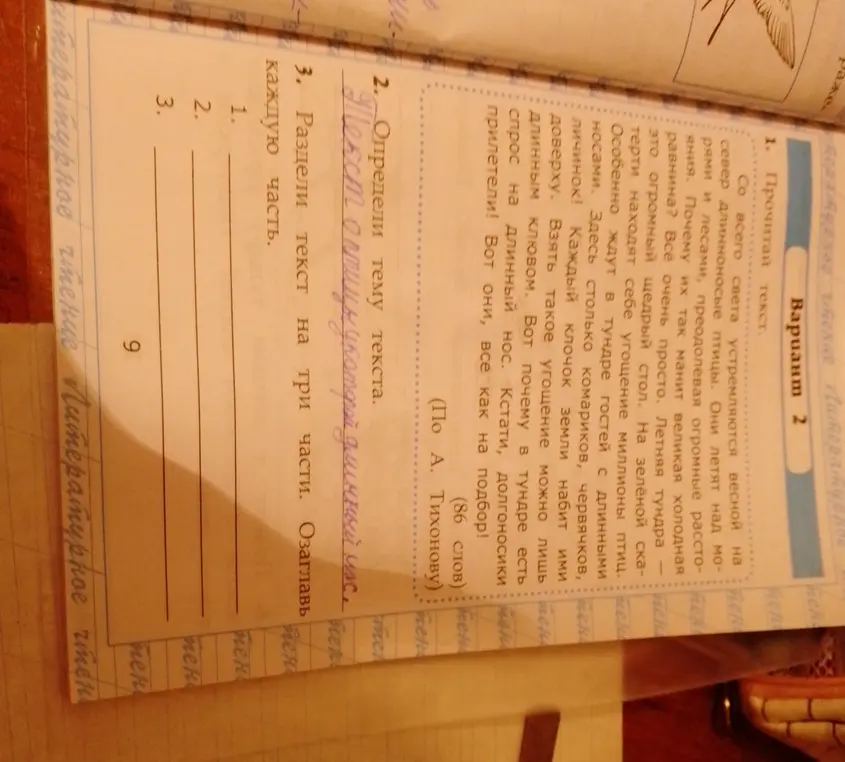 Вариант 2
1. Прочитай текст.
Со всего света устремляются весной на
север длинноносые птицы. Они летят над мо-
рями и лесами, преодолевая огромные рассто-
яния. Почему их так манит великая холодная
равнина? Всё очень просто. Летняя тундра —
это огромный щедрый стол. На зелёной ска-
терти находят себе угощение миллионы птиц.
Особенно ждут в тундре гостей с длинными
носами. Здесь столько комариков, червячков,
личинок! Каждый клочок земли набит ими
доверху. Взять такое угощение можно лишь
длинным клювом. Вот почему в тундре есть
спрос на длинный нос. Кстати, долгоносики
прилетели! Вот они, все как на подбор!
(86 слов)
(По А. Тихонову)
2. Определи тему текста.
Текст о птицы у которой длинный нос.
3. Раздели текст на три части. Озаглавь
каждую часть.
1.
2.
3.
9
Литературное чтение Литературное чтен